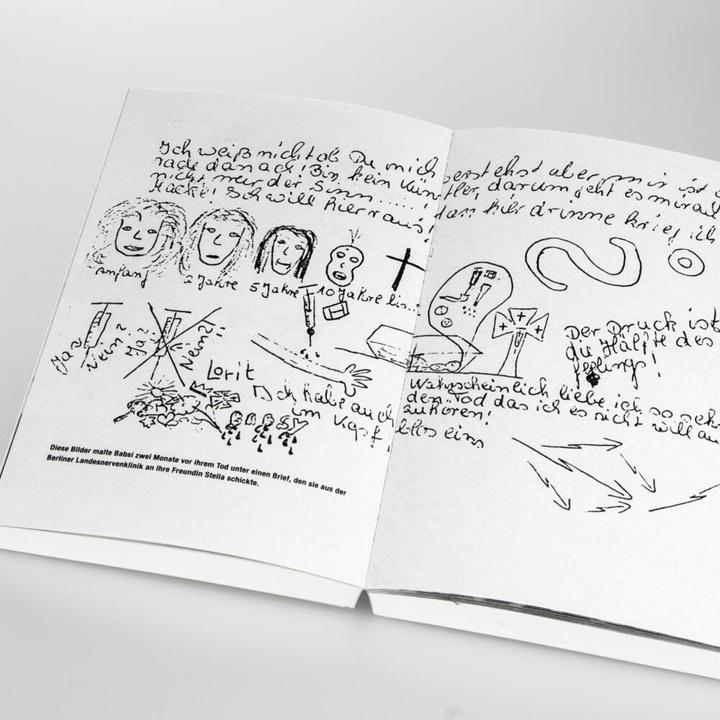 Ich weiß nicht ob Du mich verstehst aber mir ist
nach! Bin kein Künstler, darum geht es mir
nicht mer der Sinn.....
Hacke! Ich will hier raus! hier drinne krieg ich
Anfang
2 Jahre
5 Jahre
10 Jahre bis..!
Ja?
Nein?
Ja?
Nein!!
Lorit
Ich habe auch
im Kopf
eins
Der Druck ist
die Hälfte des
feelings!
Wahrscheinlich liebe ich so
den Tod das ich es nicht will
Diese Bilder malte Babsi zwei Monate vor ihrem Tod unter einen Brief, den sie aus der
Berliner Landesnervenklinik an ihre Freundin Stella schickte.